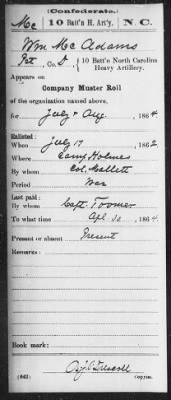 (Confederate.)
Mc 10 Batt'n H. Art'y. N.C.
Wm Mc Adams
Pvt, Co. D, 10 Batt'n North Carolina Heavy Artillery.
Appears on
Company Muster Roll
of the organization named above,
for July & Aug, 1864
Enlisted:
When July 17, 1862
Where Camp Holmes
By whom Col. Mallett
Period War
Last paid:
By whom Capt. Toomer
To what time Apl 30, 1864
Present or absent Present
Remarks:
Book mark:
(642)
Copyist.